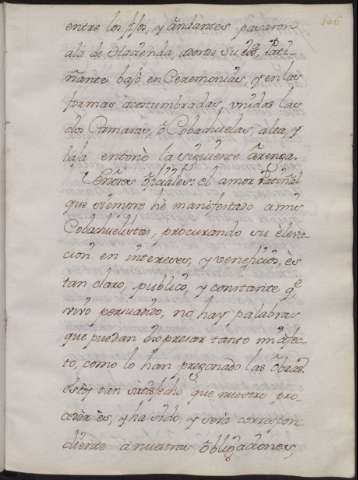 106
entre los flos, y Andantes pasaron
ala de Hacienda, donde su
ñante bajo en Ceremonias, y en las
formas acostumbradas, unidas las
dos Camaras, o Cobachuelas, alta, y
baja entonò la siguiente Arenga.
Señores Oficiales: el amor
que siempre hè manifestado a mis
Cobachuelistas, procurando su eleva-
cion en intereses, y veneficios, ès
tan claro, publico, y constante qe
vivo persuadido, no hay palabras
que puedan expresar tanto mi afec-
to, como lo han pregonado las Obras.
estoy tan satisfecho que nuestro pro-
ceder ès, y ha sido, y serà correspon
diente a nuestras obligaciones,